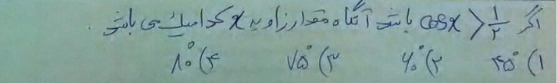 اگر cosx > ۱/۲ باشد آنگاه مقدار زاویه x کدامیک می باشد.
۱) ۴۵° ۲) ۶۰° ۳) ۷۵° ۴) ۸۰°